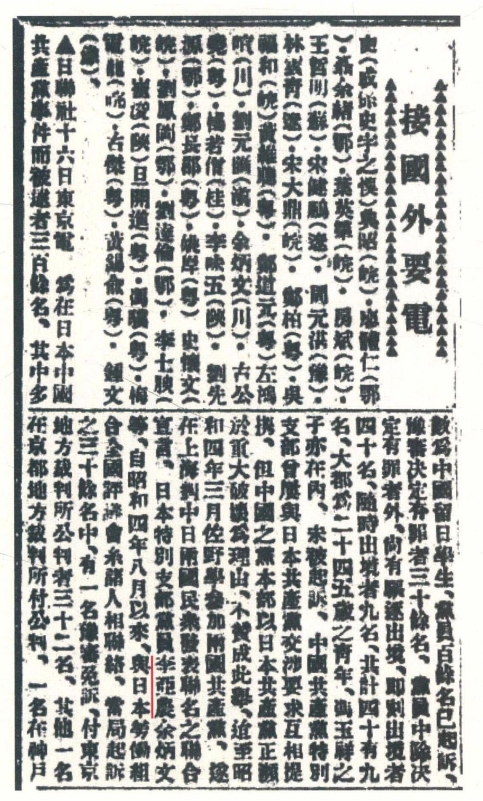 接國外要電
王哲明(蘇)．宋健鵬(遼)．周元洪(豫)．
青(遼)．宋大鼎(皖)． 鄭柏(粵)．吳
福和(皖)黃維(粵) 鄭道元(粵)左鴻
(川)．劉元(滇)．余炳文(川)．古公
(粵)．楊若僧(桂)．李味五(陝)．劉先
源(鄂)．鄭長郡(粵)．姚岸(粵) 史懷文(
皖)．劉鳳閣(鄂)．劉達倫(鄂)． 李士(
皖)．謝(陝)旦開道(粵)．馮驥(粵)．梅
電龍(皖)．古傑(粵)．黃錫(粵)． 鍾文
▲日聯社十六日東京電 爲在日本中國
共產黨事件而被逮者三百餘名、其中多
數爲中國留日學生、黨員百餘名已起訴、
豫審決定有罪者三十餘名、黨員中除決
定有罪者外、尚有願逐出境、卽刻出境者
四十名、隨時出境者九名、共計四十有九
名、大都爲二十四五歲之靑年、馮玉祥之
子亦在內、未被起訴、 中國共產黨特別
支部曾屢與日本共產黨交涉要求互相提
携、但中國之黨本部以日本共產黨正瀕
於重大破壞爲理由、不贊成此舉、迨至昭
和四年三月佐野學參加兩國共產黨、遂
在上海對中日兩國民衆發表聯名之聯合
宣言、日本特別支部黨員李亞農余炳文
等、自昭和四年八月以來、與日本勞働組
合全國評議會系諸人相聯絡、當局起訴
之三十餘名中、有一名豫審免訴、付東京
地方裁判所公判者三十二名、其他一名
在京都地方裁判所付公判、一名在神戶